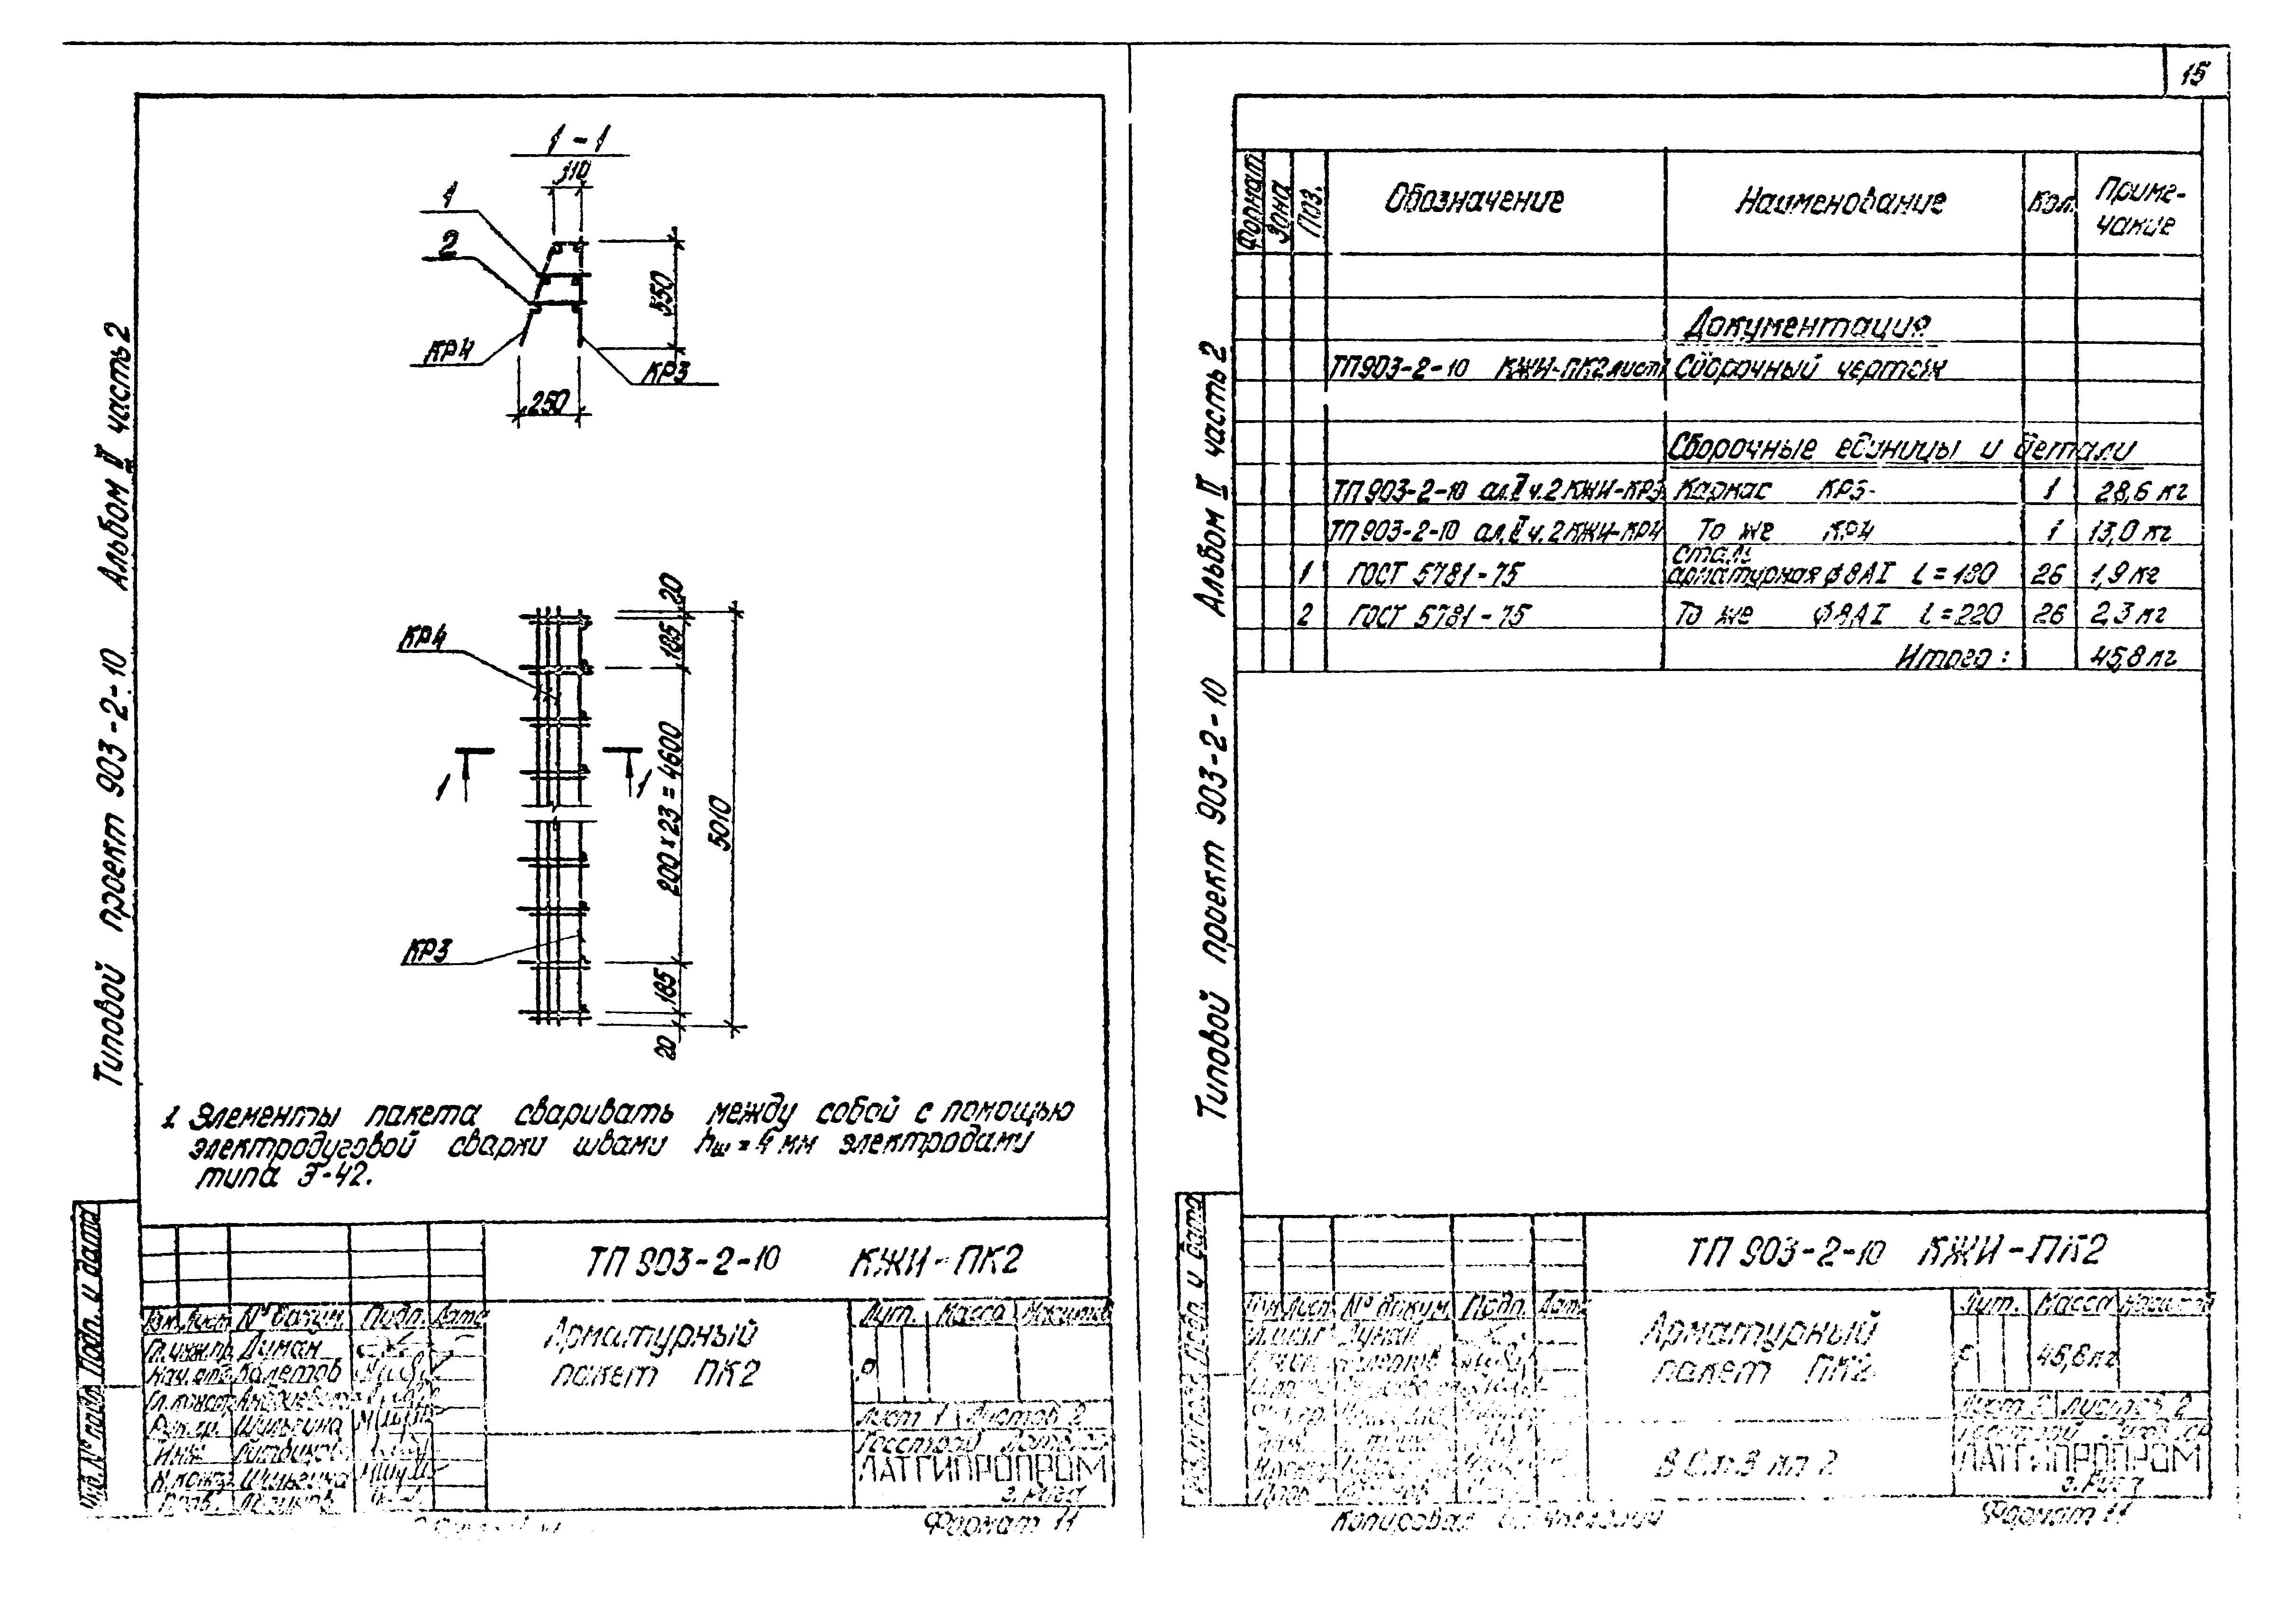 15
Типовой проект 903-2-10 Альбом II часть 2
1-1
310
1
2
550
КР4
КР3
250
КР4
КР3
1
1
20
185
200×23=4600
185
20
5010
1. Элементы пакета сваривать между собой с помощью
электродуговой сварки швами hш=4 мм электродами
типа Э-42.
ТП 903-2-10 КЖИ-ПК2
Изм. Лист № докум. Подп. Дата
Гл.инж.пр. Думан
Нач.отд.
Гл.конст.
Рук.гр. Шульгина
Инж.
Н.контр. Шульгина
Пров.
Арматурный
пакет ПК2
Лит. Масса Масштаб
Р
Лист 1 Листов 2
Госстрой
ЛАТГИПРОПРОМ
г. Рига
Формат 11
Инв. № подл. Подп. и дата
Типовой проект 903-2-10 Альбом II часть 2
Формат Зона Поз. Обозначение Наименование Кол. Приме-
чание
Документация
ТП 903-2-10 КЖИ-ПК2 лист 1 Сборочный чертеж
Сборочные единицы и детали
ТП 903-2-10 ал.II ч.2 КЖИ-КР3 Каркас КР3 1 28,6 кг
ТП 903-2-10 ал.II ч.2 КЖИ-КР4 То же КР4 1 13,0 кг
Сталь
1 ГОСТ 5781-75 арматурная ф8АI l=180 26 1,9 кг
2 ГОСТ 5781-75 То же ф8АI l=220 26 2,3 кг
Итого: 45,8 кг
ТП 903-2-10 КЖИ-ПК2
Изм. Лист № докум. Подп. Дата
Арматурный
пакет ПК2
Лит. Масса Масштаб
Р 45,8 кг
Лист 2 Листов 2
Госстрой
ЛАТГИПРОПРОМ
г. Рига
Копировал
Формат 11
Подп. и дата